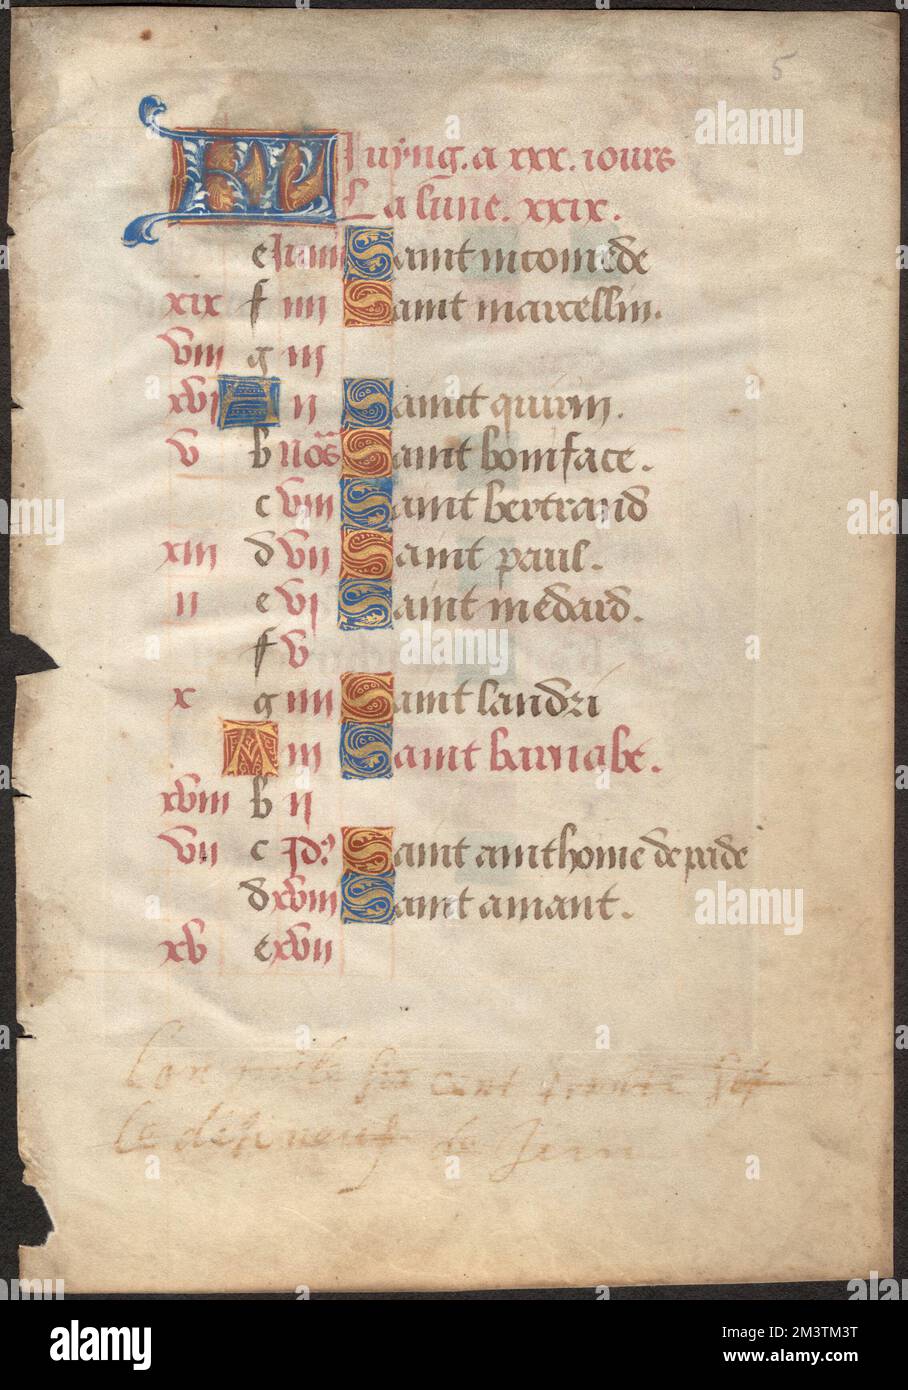 5
KL Juyng. a xxx. iours
La lune. xxix.
e Iunii Saint nicomede
xix f iiii Saint marcellin.
viii g iii
xvi A ii Sainct quirin.
v b Nōs Saint boniface.
c viii Saint bertrand
xiii d vii Saint paul.
ii e vi Saint medard.
f v
x g iiii Saint landri
A iii Saint barnabe.
xviii b ii
vii c Id9 Saint anthoine de pade
d xviii Saint amant.
xv e xvii
Lan mille six cent trente sept
Le disineuf de Jeun
alamy
a
Image ID: 2M3TM3T
www.alamy.com